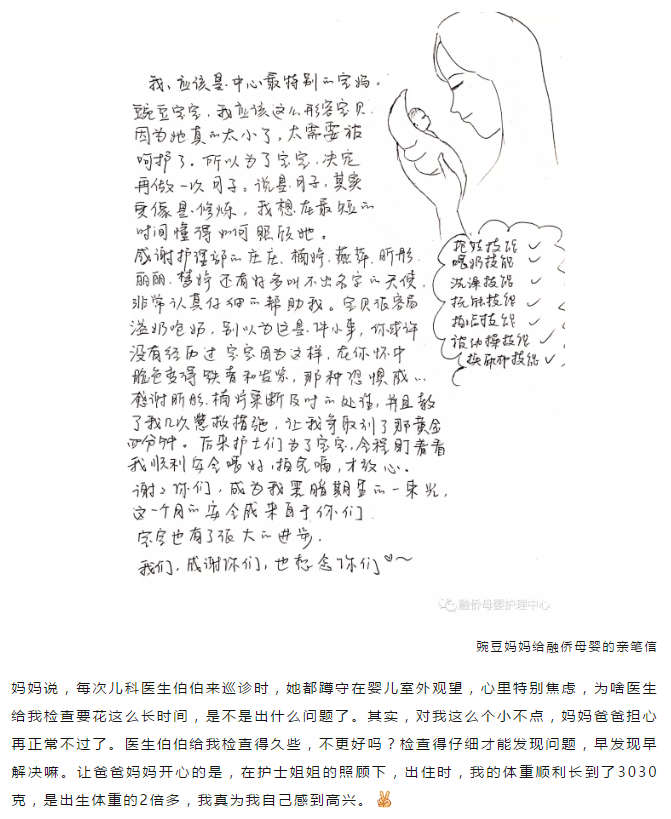 我，应该是中心最特别的宝妈。
豌豆宝宝，我应该这么形容宝贝
因为她真的太小了，太需要被
呵护了。所以为了宝宝，决定
再做一次月子。说是月子，其实
更像是修炼，我想在最短的
时间懂得如何照顾她。
感谢护理部的庄庄、楠婷、燕萍、昕彤、
丽丽、梦婷还有好多叫不出名字的天使，
非常认真仔细的帮助我。宝贝很容易
溢奶呛奶，别以为这是件小事，你或许
没有经历过宝宝因为这样，在你怀中
脸色变得铁青和发紫，那种恐惧感…
感谢昕彤、楠婷果断及时的处治，并且教
了我几次急救措施，让我争取到了那黄金
四分钟。后来护士们为了宝宝，全程盯着看
我顺利安全喂好，拍完嗝，才放心。
谢谢你们，成为我黑暗期里的一束光，
这一个月的安全感来自于你们
宝宝也有了很大的进步，
我们，感谢你们，也想念你们♡～
抱娃技能 ✓
喂奶技能 ✓
洗澡技能 ✓
抚触技能 ✓
拍嗝技能 ✓
被动操技能 ✓
换尿布技能 ✓
融侨母婴护理中心
豌豆妈妈给融侨母婴的亲笔信
妈妈说，每次儿科医生伯伯来巡诊时，她都蹲守在婴儿室外观望，心里特别焦虑，为啥医生
给我检查要花这么长时间，是不是出什么问题了。其实，对我这么个小不点，妈妈爸爸担心
再正常不过了。医生伯伯给我检查得久些，不更好吗？检查得仔细才能发现问题，早发现早
解决嘛。让爸爸妈妈开心的是，在护士姐姐的照顾下，出住时，我的体重顺利长到了3030
克，是出生体重的2倍多，我真为我自己感到高兴。✌